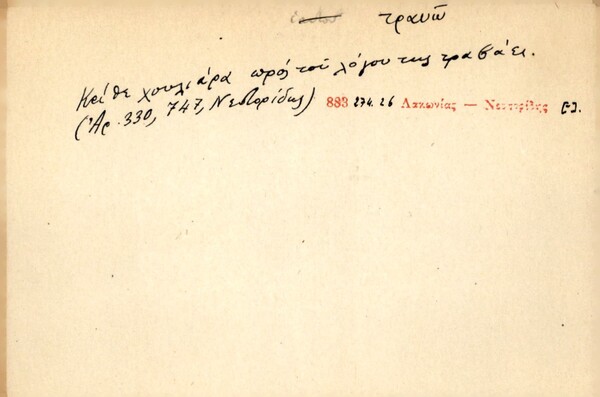 τραυῶ
Κάθε χουλιάρα πρὸς τοῦ λόγου της τραβάει.
(Ἀρ. 330, 747, Νεστορίδης) 883 274.26 Λακωνίας — Νεστορίδης